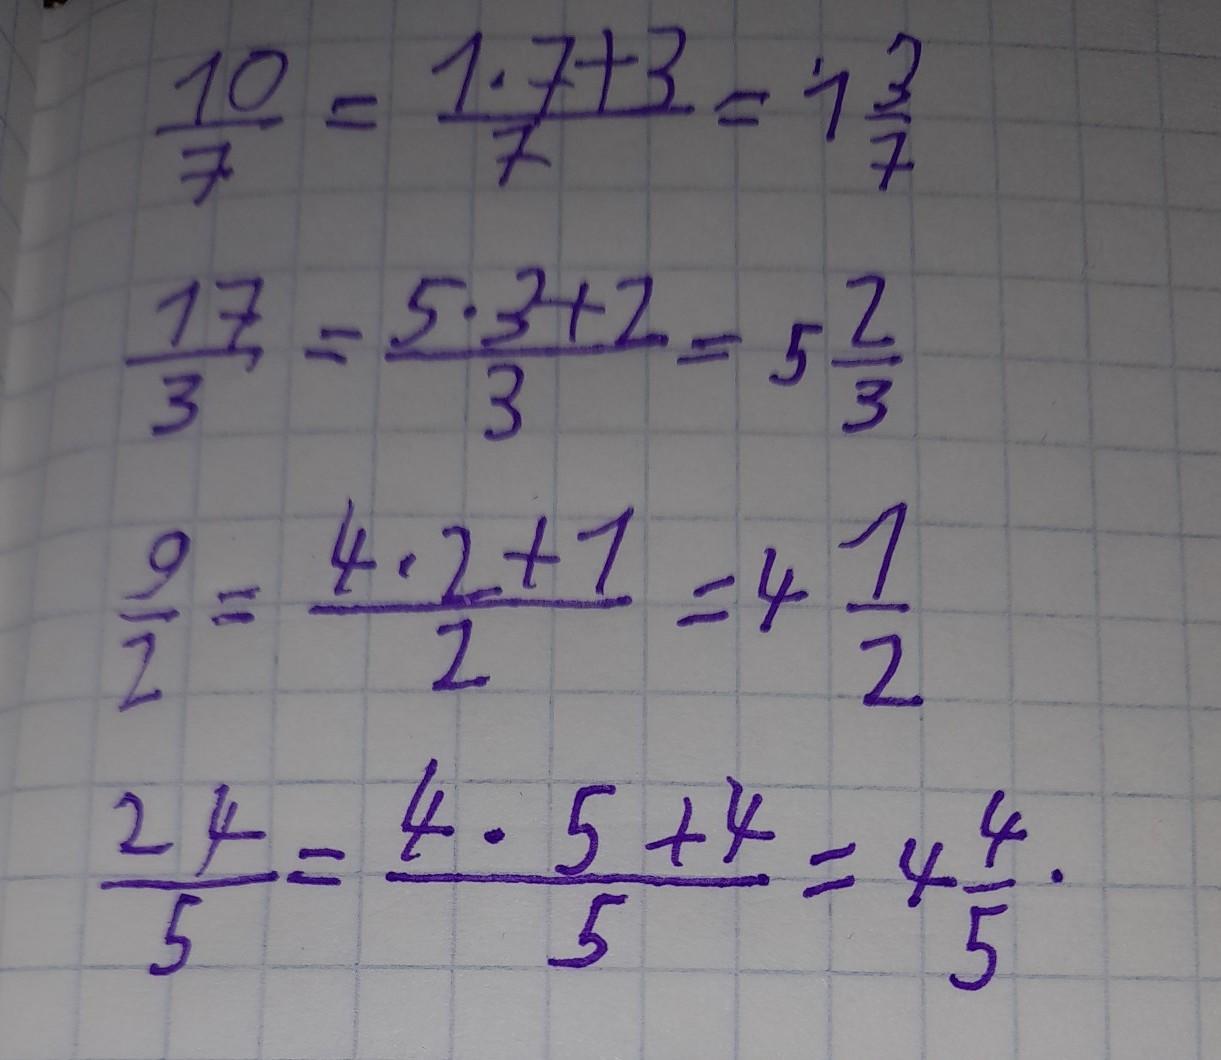 10/7 = (1·7+3)/7 = 1 3/7
17/3 = (5·3+2)/3 = 5 2/3
9/2 = (4·2+1)/2 = 4 1/2
24/5 = (4·5+4)/5 = 4 4/5.